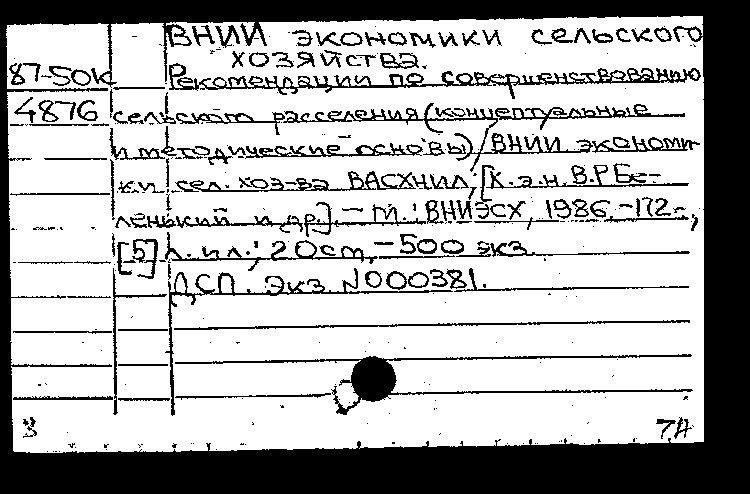 ВНИИ экономики сельского
хозяйства.
87-50к Рекомендации по совершенствованию
4876 сельского расселения (концептуальные
и методические основы) / ВНИИ экономи-
ки сел. хоз-ва ВАСХНИЛ; [К.э.н. В.Р. Бе-
ленький и др.]. - М.: ВНИЭСХ, 1986. - 172 с.,
[5] л. ил.; 20 см, - 500 экз.
ДСП. Экз. N000381.